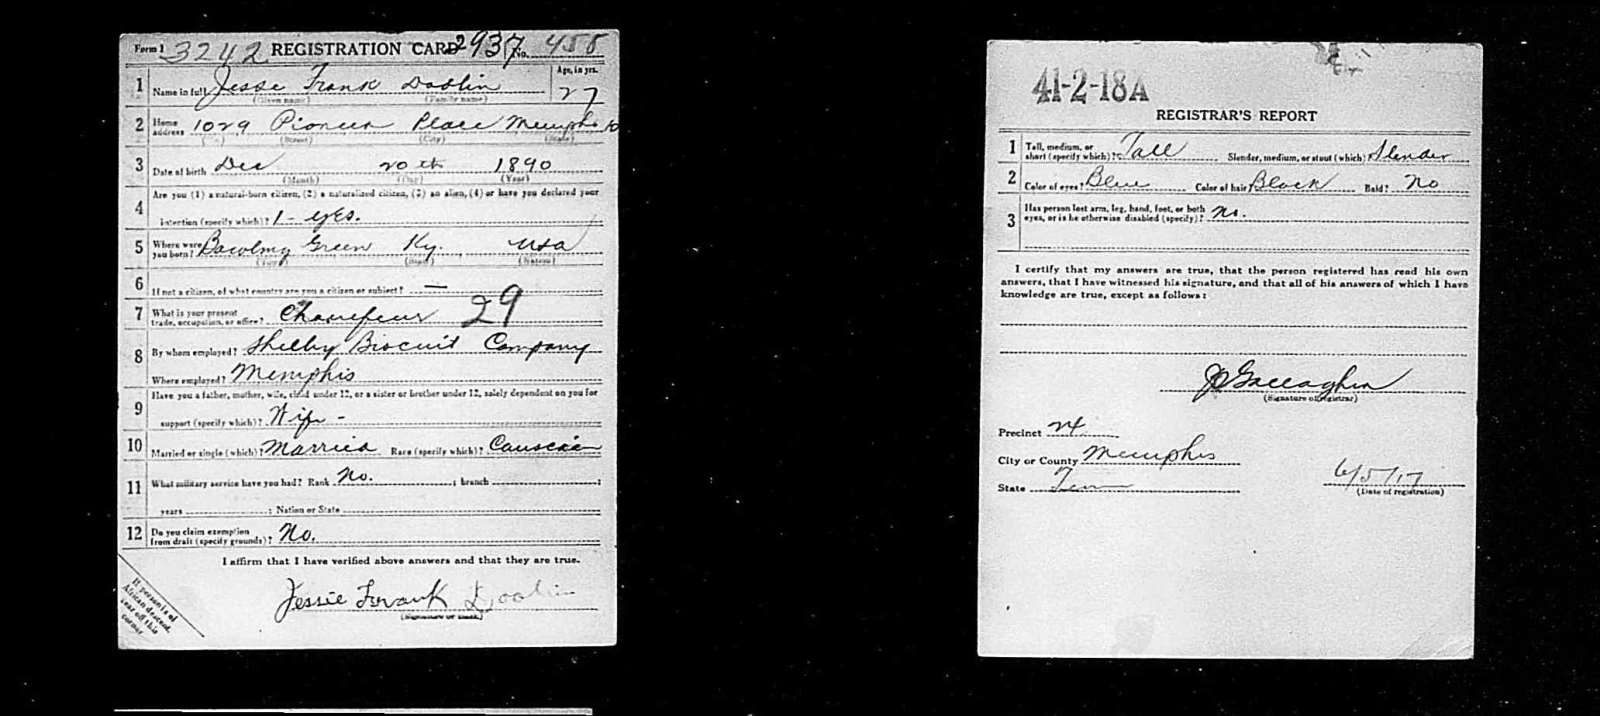 Form 1 3242 REGISTRATION CARD 2937 No. 458
1 Name in full Jesse Frank Dooslin Age, in yrs.
(Given name) (Family name) 27
2 Home address 1029 Pioneer Place Memphis
(No.) (Street) (City) (State)
3 Date of birth Dec 20th 1890
(Month) (Day) (Year)
4 Are you (1) a natural-born citizen, (2) a naturalized citizen, (3) an alien, (4) or have you declared your
intention (specify which)? 1 - yes.
5 Where were you born? Bowling Green Ky. USA
(Town) (State) (Nation)
6 If not a citizen, of what country are you a citizen or subject? —
7 What is your present trade, occupation, or office? Chauffeur 29
8 By whom employed? Shelby Biscuit Company
Where employed? Memphis
9 Have you a father, mother, wife, child under 12, or a sister or brother under 12, solely dependent on you for
support (specify which)? Wife -
10 Married or single (which)? Married Race (specify which)? Causcain
11 What military service have you had? Rank No. ; branch ;
years ; Nation or State
12 Do you claim exemption from draft (specify grounds)? No.
I affirm that I have verified above answers and that they are true.
Jessie Frank Doolin
(Signature or mark)
If person is of
African descent,
tear off this
corner
41-2-18A
REGISTRAR'S REPORT
1 Tall, medium, or short (specify which)? Tall Slender, medium, or stout (which)? Slender
2 Color of eyes? Blue Color of hair? Black Bald? No
3 Has person lost arm, leg, hand, foot, or both
eyes, or is he otherwise disabled (specify)? No.
I certify that my answers are true, that the person registered has read his own
answers, that I have witnessed his signature, and that all of his answers of which I have
knowledge are true, except as follows:
J Gallaghan
(Signature of registrar)
Precinct 24
City or County Memphis
State Tenn 6/5/17
(Date of registration)